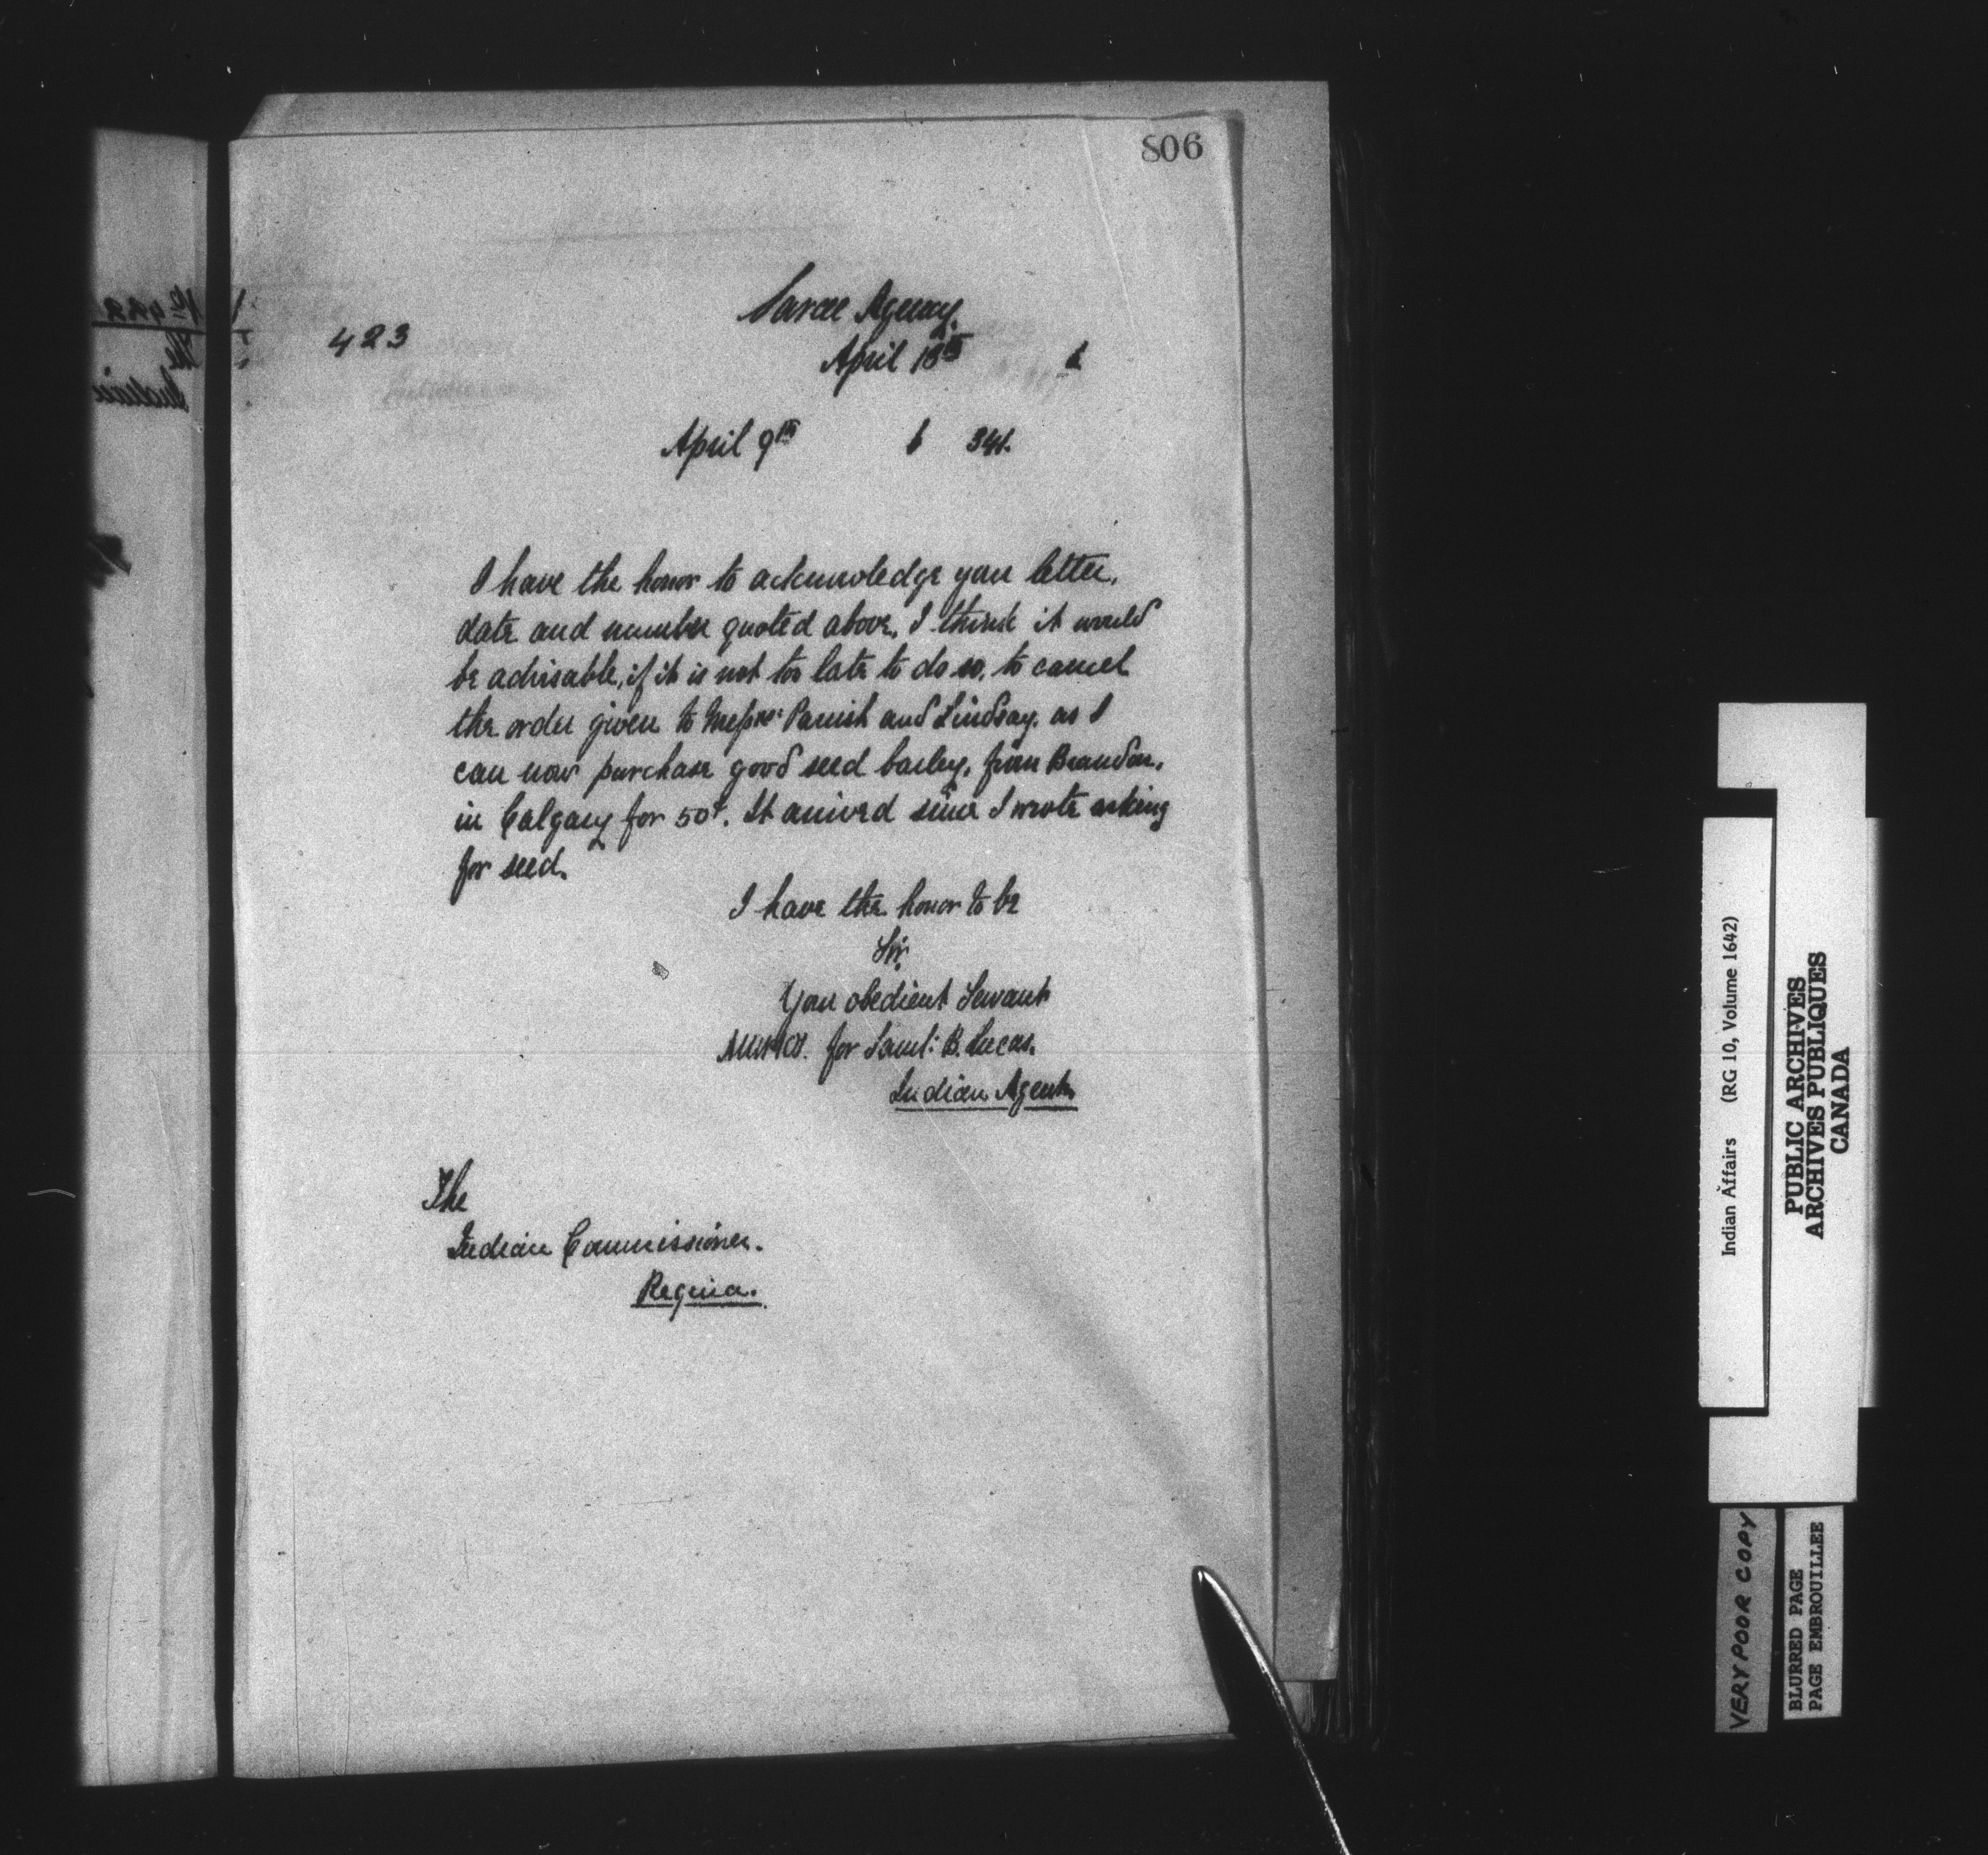 806
Sarcee Agency.
423
April 13th 6
April 9th 6 341.
I have the honor to acknowledge your letter,
date and number quoted above, I think it would
be advisable, if it is not too late to do so, to cancel
the order given to Messrs: Parrish and Lindsay, as I
can now purchase good seed barley, from Brandon,
in Calgary for 50¢. It arrived since I wrote asking
for seed.
I have the honor to be
Sir,
Your obedient Servant
for Saml: B. Lucas.
Indian Agent.
The
Indian Commissioner.
Regina.
Indian Affairs (RG 10, Volume 1642)
PUBLIC ARCHIVES
ARCHIVES PUBLIQUES
CANADA
VERY POOR COPY
BLURRED PAGE
PAGE EMBROUILLEE